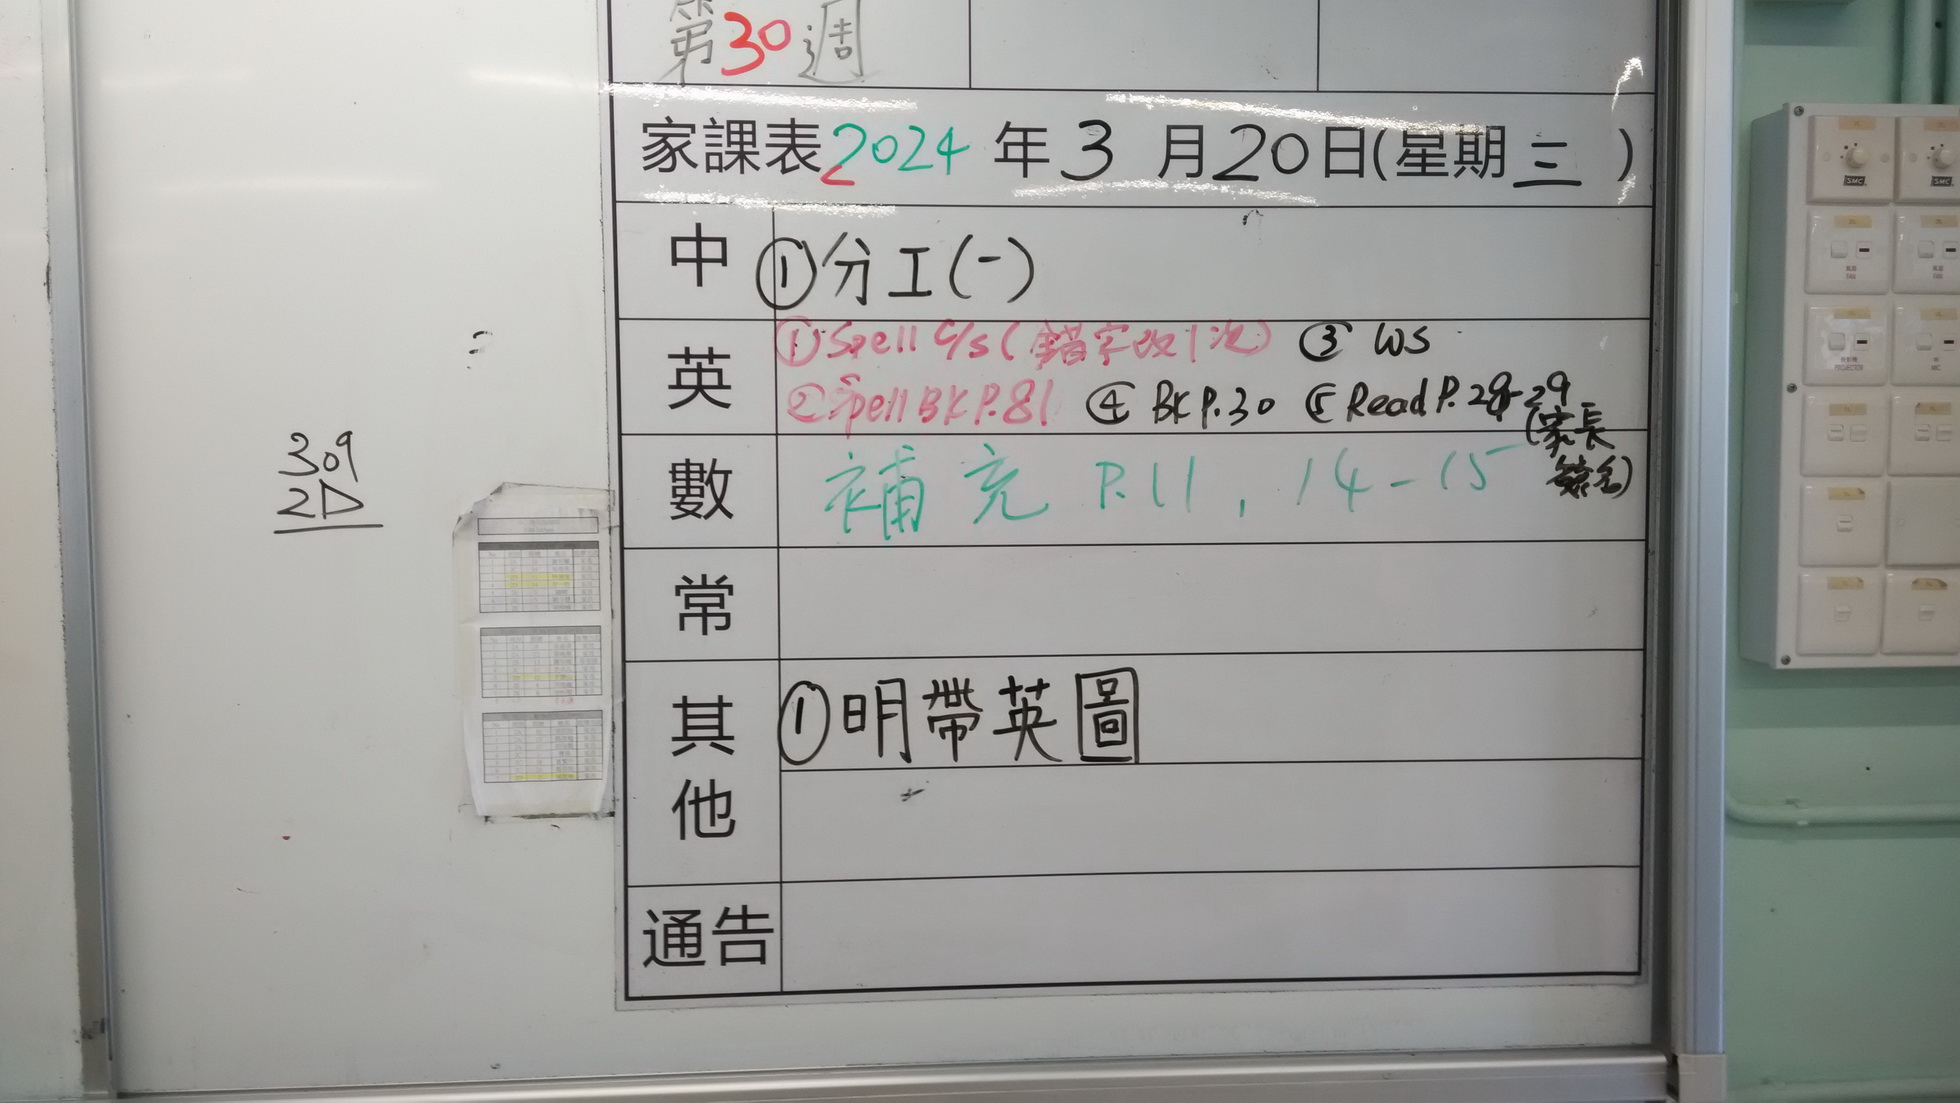 第30週
家課表2024年3月20日(星期三)
中 ①分工(一)
英 ①Spell C/S(錯字改1次) ③ WS
②Spell BK P.81 ④ BK P.30 ⑤ Read P.28-29
(家長
簽名)
數 補充 P.11, 14-15
常
其他 ①明帶英圖
通告
309
2D
SMC
SMC